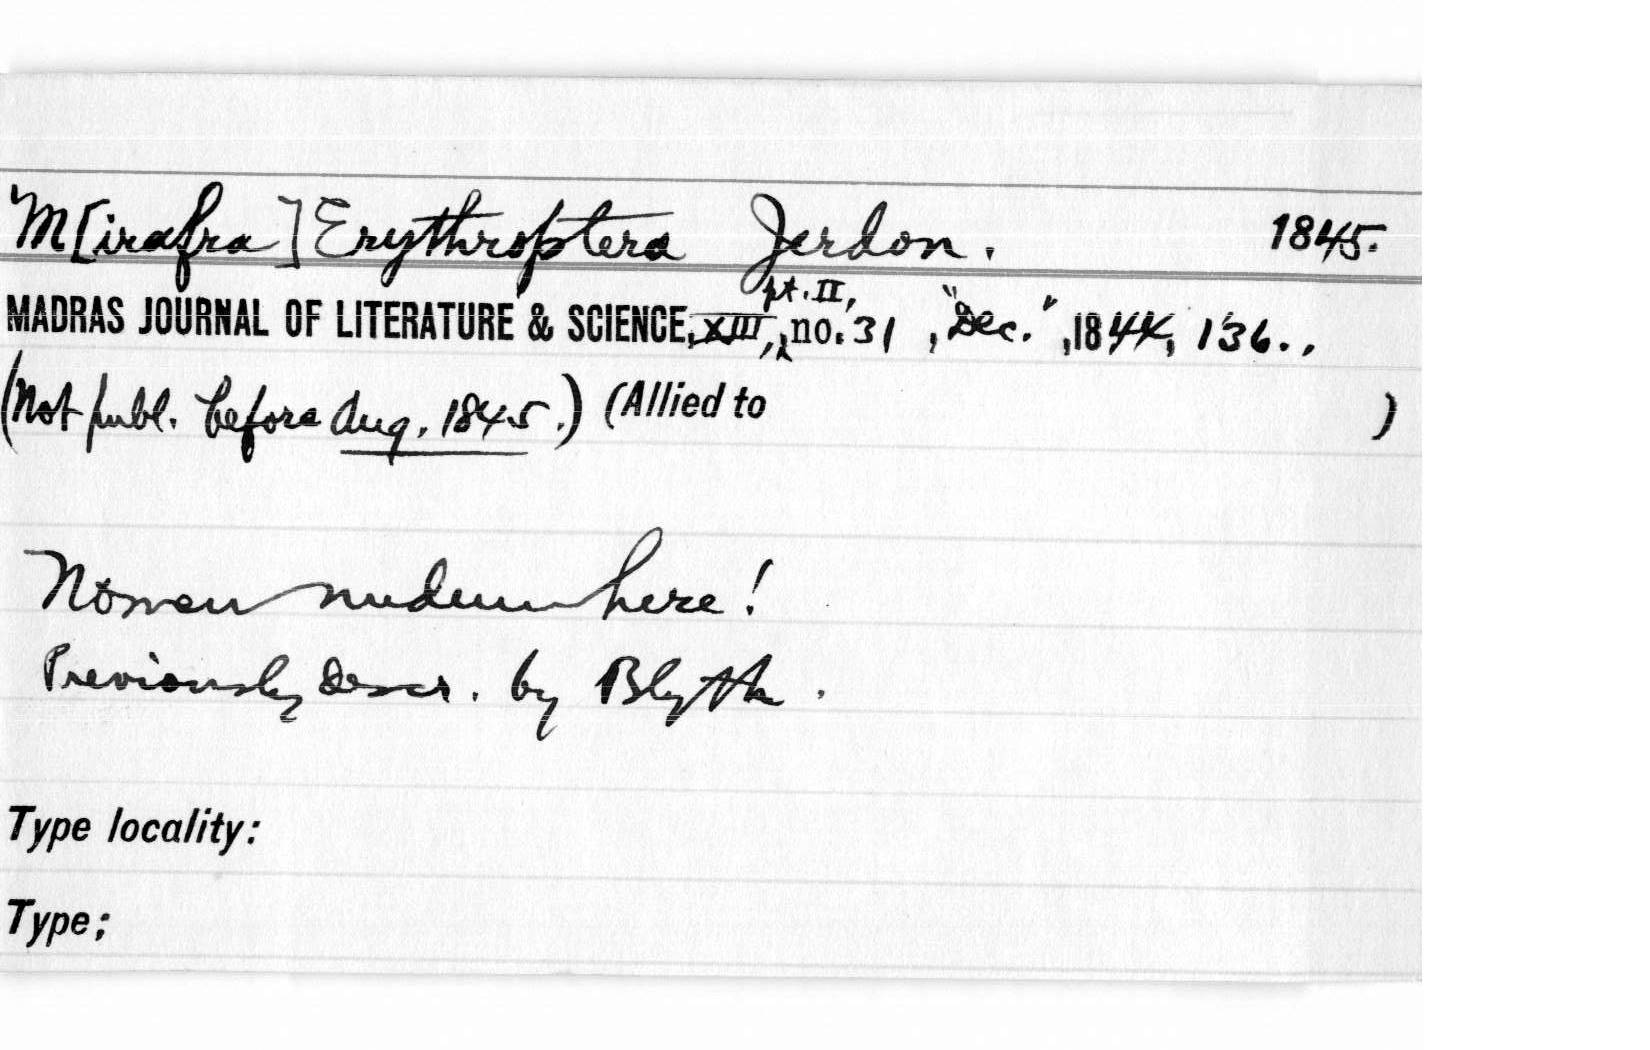 M[irafra] Erythroptera Jerdon. 1845.
pt. II,
MADRAS JOURNAL OF LITERATURE & SCIENCE, XIII, no. 31, "Dec.", 1844, 136.,
(Not publ. before Aug, 1845.) (Allied to )
Nomen nudum here!
Previously Descr. by Blyth.
Type locality:
Type;